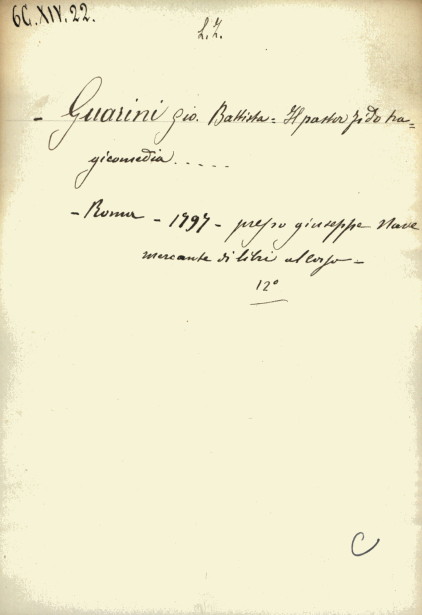 6C.XIV.22.
L.Z.
- Guarini Gio. Battista = Il pastor fido tra=
gicomedia.....
- Roma - 1797 - presso giuseppe Nave
mercante di libri al corso -
12°
C